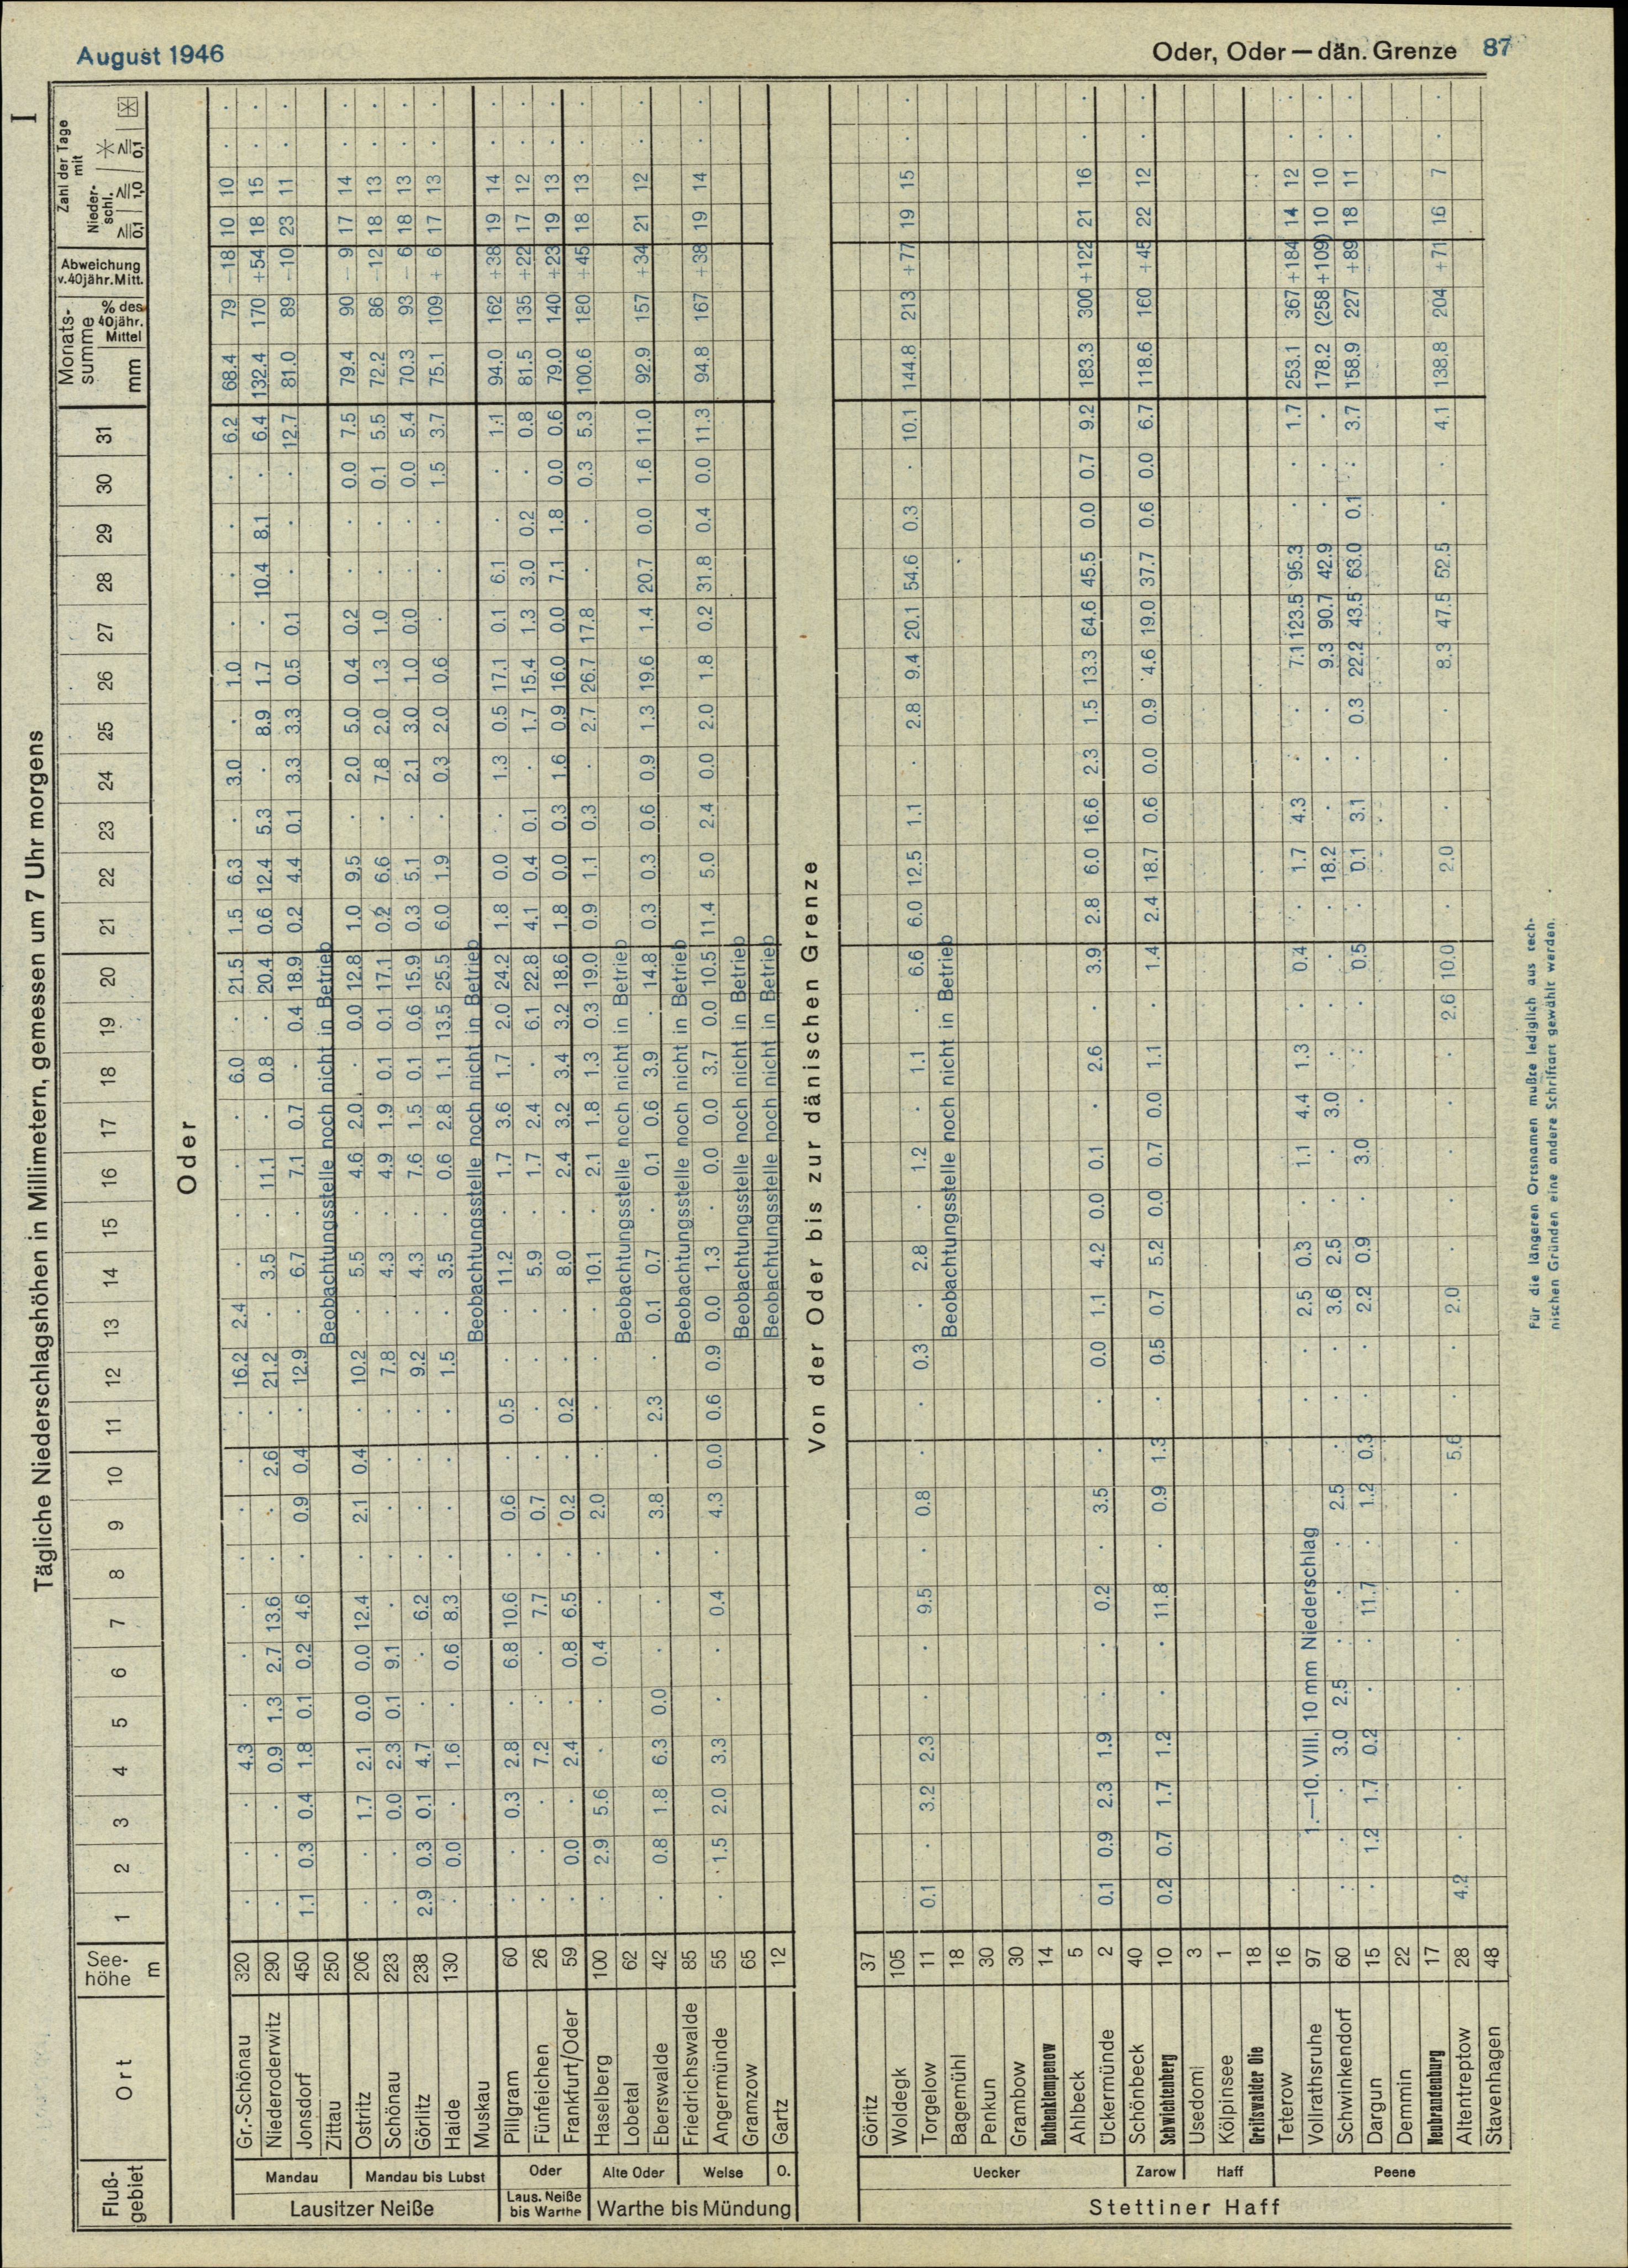 August 1946
Oder, Oder — dän. Grenze 87
I
Tägliche Niederschlagshöhen in Millimetern, gemessen um 7 Uhr morgens
Fluß-gebiet Ort See-höhe m 1 2 3 4 5 6 7 8 9 10 11 12 13 14 15 16 17 18 19 20 21 22 23 24 25 26 27 28 29 30 31 Monats-summe mm % des 40jähr. Mittel Abweichung v. 40jähr. Mitt. Zahl der Tage mit Nieder-schl. ≧0,1 ≧1,0 ≧0,1
Oder
Lausitzer Neiße
Mandau
Gr.-Schönau 320 . . . 4.3 . . . . . . . 16.2 2.4 . . . . 6.0 . 21.5 1.5 6.3 . 3.0 . 1.0 . . . . 6.2 68.4 79 −18 10 10 . .
Niederoderwitz 290 . . . 0.9 1.3 2.7 13.6 . . 2.6 . 21.2 . 3.5 . 11.1 . 0.8 . 20.4 0.6 12.4 5.3 . 8.9 1.7 . 10.4 8.1 . 6.4 132.4 170 +54 18 15 . .
Jonsdorf 450 1.1 0.3 0.4 1.8 0.1 0.2 4.6 . 0.9 0.4 . 12.9 . 6.7 . 7.1 0.7 . 0.4 18.9 0.2 4.4 0.1 3.3 3.3 0.5 0.1 . . . 12.7 81.0 89 −10 23 11 . .
Zittau 250 Beobachtungsstelle noch nicht in Betrieb
Mandau bis Lubst
Ostritz 206 . . 1.7 2.1 0.0 0.0 12.4 . 2.1 0.4 . 10.2 . 5.5 . 4.6 2.0 . 0.0 12.8 1.0 9.5 . 2.0 5.0 0.4 0.2 . . 0.0 7.5 79.4 90 − 9 17 14 . .
Schönau 223 . . 0.0 2.3 0.1 9.1 . . . . . 7.8 . 4.3 . 4.9 1.9 0.1 0.1 17.1 0.2 6.6 . 7.8 2.0 1.3 1.0 . . 0.1 5.5 72.2 86 −12 18 13 . .
Görlitz 238 2.9 0.3 0.1 4.7 . . 6.2 . . . . 9.2 . 4.3 . 7.6 1.5 0.1 0.6 15.9 0.3 5.1 . 2.1 3.0 1.0 0.0 . . 0.0 5.4 70.3 93 − 6 18 13 . .
Haide 130 . 0.0 . 1.6 . 0.6 8.3 . . . . 1.5 . 3.5 . 0.6 2.8 1.1 13.5 25.5 6.0 1.9 . 0.3 2.0 0.6 . . . 1.5 3.7 75.1 109 + 6 17 13 . .
Muskau Beobachtungsstelle noch nicht in Betrieb
Laus. Neiße bis Warthe
Oder
Pillgram 60 . . 0.3 2.8 . 6.8 10.6 . 0.6 . 0.5 . . 11.2 . 1.7 3.6 1.7 2.0 24.2 1.8 0.0 . 1.3 0.5 17.1 0.1 6.1 . . 1.1 94.0 162 +38 19 14 . .
Fünfeichen 26 . . . 7.2 . . 7.7 . 0.7 . . . . 5.9 . 1.7 2.4 . 6.1 22.8 4.1 0.4 0.1 . 1.7 15.4 1.3 3.0 0.2 . 0.8 81.5 135 +22 17 12 . .
Frankfurt/Oder 59 . 0.0 . 2.4 . 0.8 6.5 . 0.2 . 0.2 . . 8.0 . 2.4 3.2 3.4 3.2 18.6 1.8 0.0 0.3 1.6 0.9 16.0 0.0 7.1 1.8 0.0 0.6 79.0 140 +23 19 13 . .
Warthe bis Mündung
Alte Oder
Haselberg 100 . 2.9 5.6 . . 0.4 . . 2.0 . . . . 10.1 . 2.1 1.8 1.3 0.3 19.0 0.9 1.1 0.3 . 2.7 26.7 17.8 . . 0.3 5.3 100.6 180 +45 18 13 . .
Lobetal 62 Beobachtungsstelle noch nicht in Betrieb
Eberswalde 42 . 0.8 1.8 6.3 0.0 . . . 3.8 . 2.3 . 0.1 0.7 . 0.1 0.6 3.9 . 14.8 0.3 0.3 0.6 0.9 1.3 19.6 1.4 20.7 0.0 1.6 11.0 92.9 157 +34 21 12 . .
Welse
Friedrichswalde 85 Beobachtungsstelle noch nicht in Betrieb
Angermünde 55 . 1.5 2.0 3.3 . . 0.4 . 4.3 0.0 0.6 0.9 0.0 1.3 . 0.0 0.0 3.7 0.0 10.5 11.4 5.0 2.4 0.0 2.0 1.8 0.2 31.8 0.4 0.0 11.3 94.8 167 +38 19 14 . .
Gramzow 65 Beobachtungsstelle noch nicht in Betrieb
O.
Gartz 12 Beobachtungsstelle noch nicht in Betrieb
Von der Oder bis zur dänischen Grenze
Stettiner Haff
Uecker
Göritz 37
Woldegk 105
Torgelow 11 0.1 . 3.2 2.3 . . 9.5 . 0.8 . . 0.3 . 2.8 . 1.2 . 1.1 . 6.6 6.0 12.5 1.1 . 2.8 9.4 20.1 54.6 0.3 . 10.1 144.8 213 +77 19 15 . .
Bagemühl 18 Beobachtungsstelle noch nicht in Betrieb
Penkun 30
Grambow 30
Rothenklempenow 14
Ahlbeck 5
Ückermünde 2 0.1 0.9 2.3 1.9 . . 0.2 . 3.5 . . 0.0 1.1 4.2 0.0 0.1 . 2.6 . 3.9 2.8 6.0 16.6 2.3 1.5 13.3 64.6 45.5 0.0 0.7 9.2 183.3 300 +122 21 16 . .
Zarow
Schönbeck 40
Schwichtenberg 10 0.2 0.7 1.7 1.2 . . 11.8 . 0.9 1.3 . 0.5 0.7 5.2 0.0 0.7 0.0 1.1 . 1.4 2.4 18.7 0.6 0.0 0.9 4.6 19.0 37.7 0.6 0.0 6.7 118.6 160 +45 22 12 . .
Haff
Usedom 3
Kölpinsee 1
Greifswalder Oie 18
Peene
Teterow 16
Vollrathsruhe 97 1.—10. VIII. 10 mm Niederschlag . . 2.5 0.3 . 1.1 4.4 1.3 . 0.4 . 1.7 4.3 . . 7.1 123.5 95.3 . . 1.7 253.1 367 +184 14 12 . .
Schwinkendorf 60 . . . 3.0 2.5 . . . 2.5 . . . 3.6 2.5 . . 3.0 . . . . 18.2 . . . 9.3 90.7 42.9 . . . 178.2 (258 +109) 10 10 . .
Dargun 15 . 1.2 1.7 0.2 . . 11.7 . 1.2 0.3 . . 2.2 0.9 . 3.0 . . . 0.5 . 0.1 3.1 . 0.3 22.2 43.5 63.0 0.1 . 3.7 158.9 227 +89 18 11 . .
Demmin 22
Neubrandenburg 17
Altentreptow 28 4.2 . . . . . . . . 5.6 . . 2.0 . . . . . 2.6 10.0 . 2.0 . . . 8.3 47.5 52.5 . . 4.1 138.8 204 +71 16 7 . .
Stavenhagen 48
Für die längeren Ortsnamen mußte lediglich aus tech-
nischen Gründen eine andere Schriftart gewählt werden.